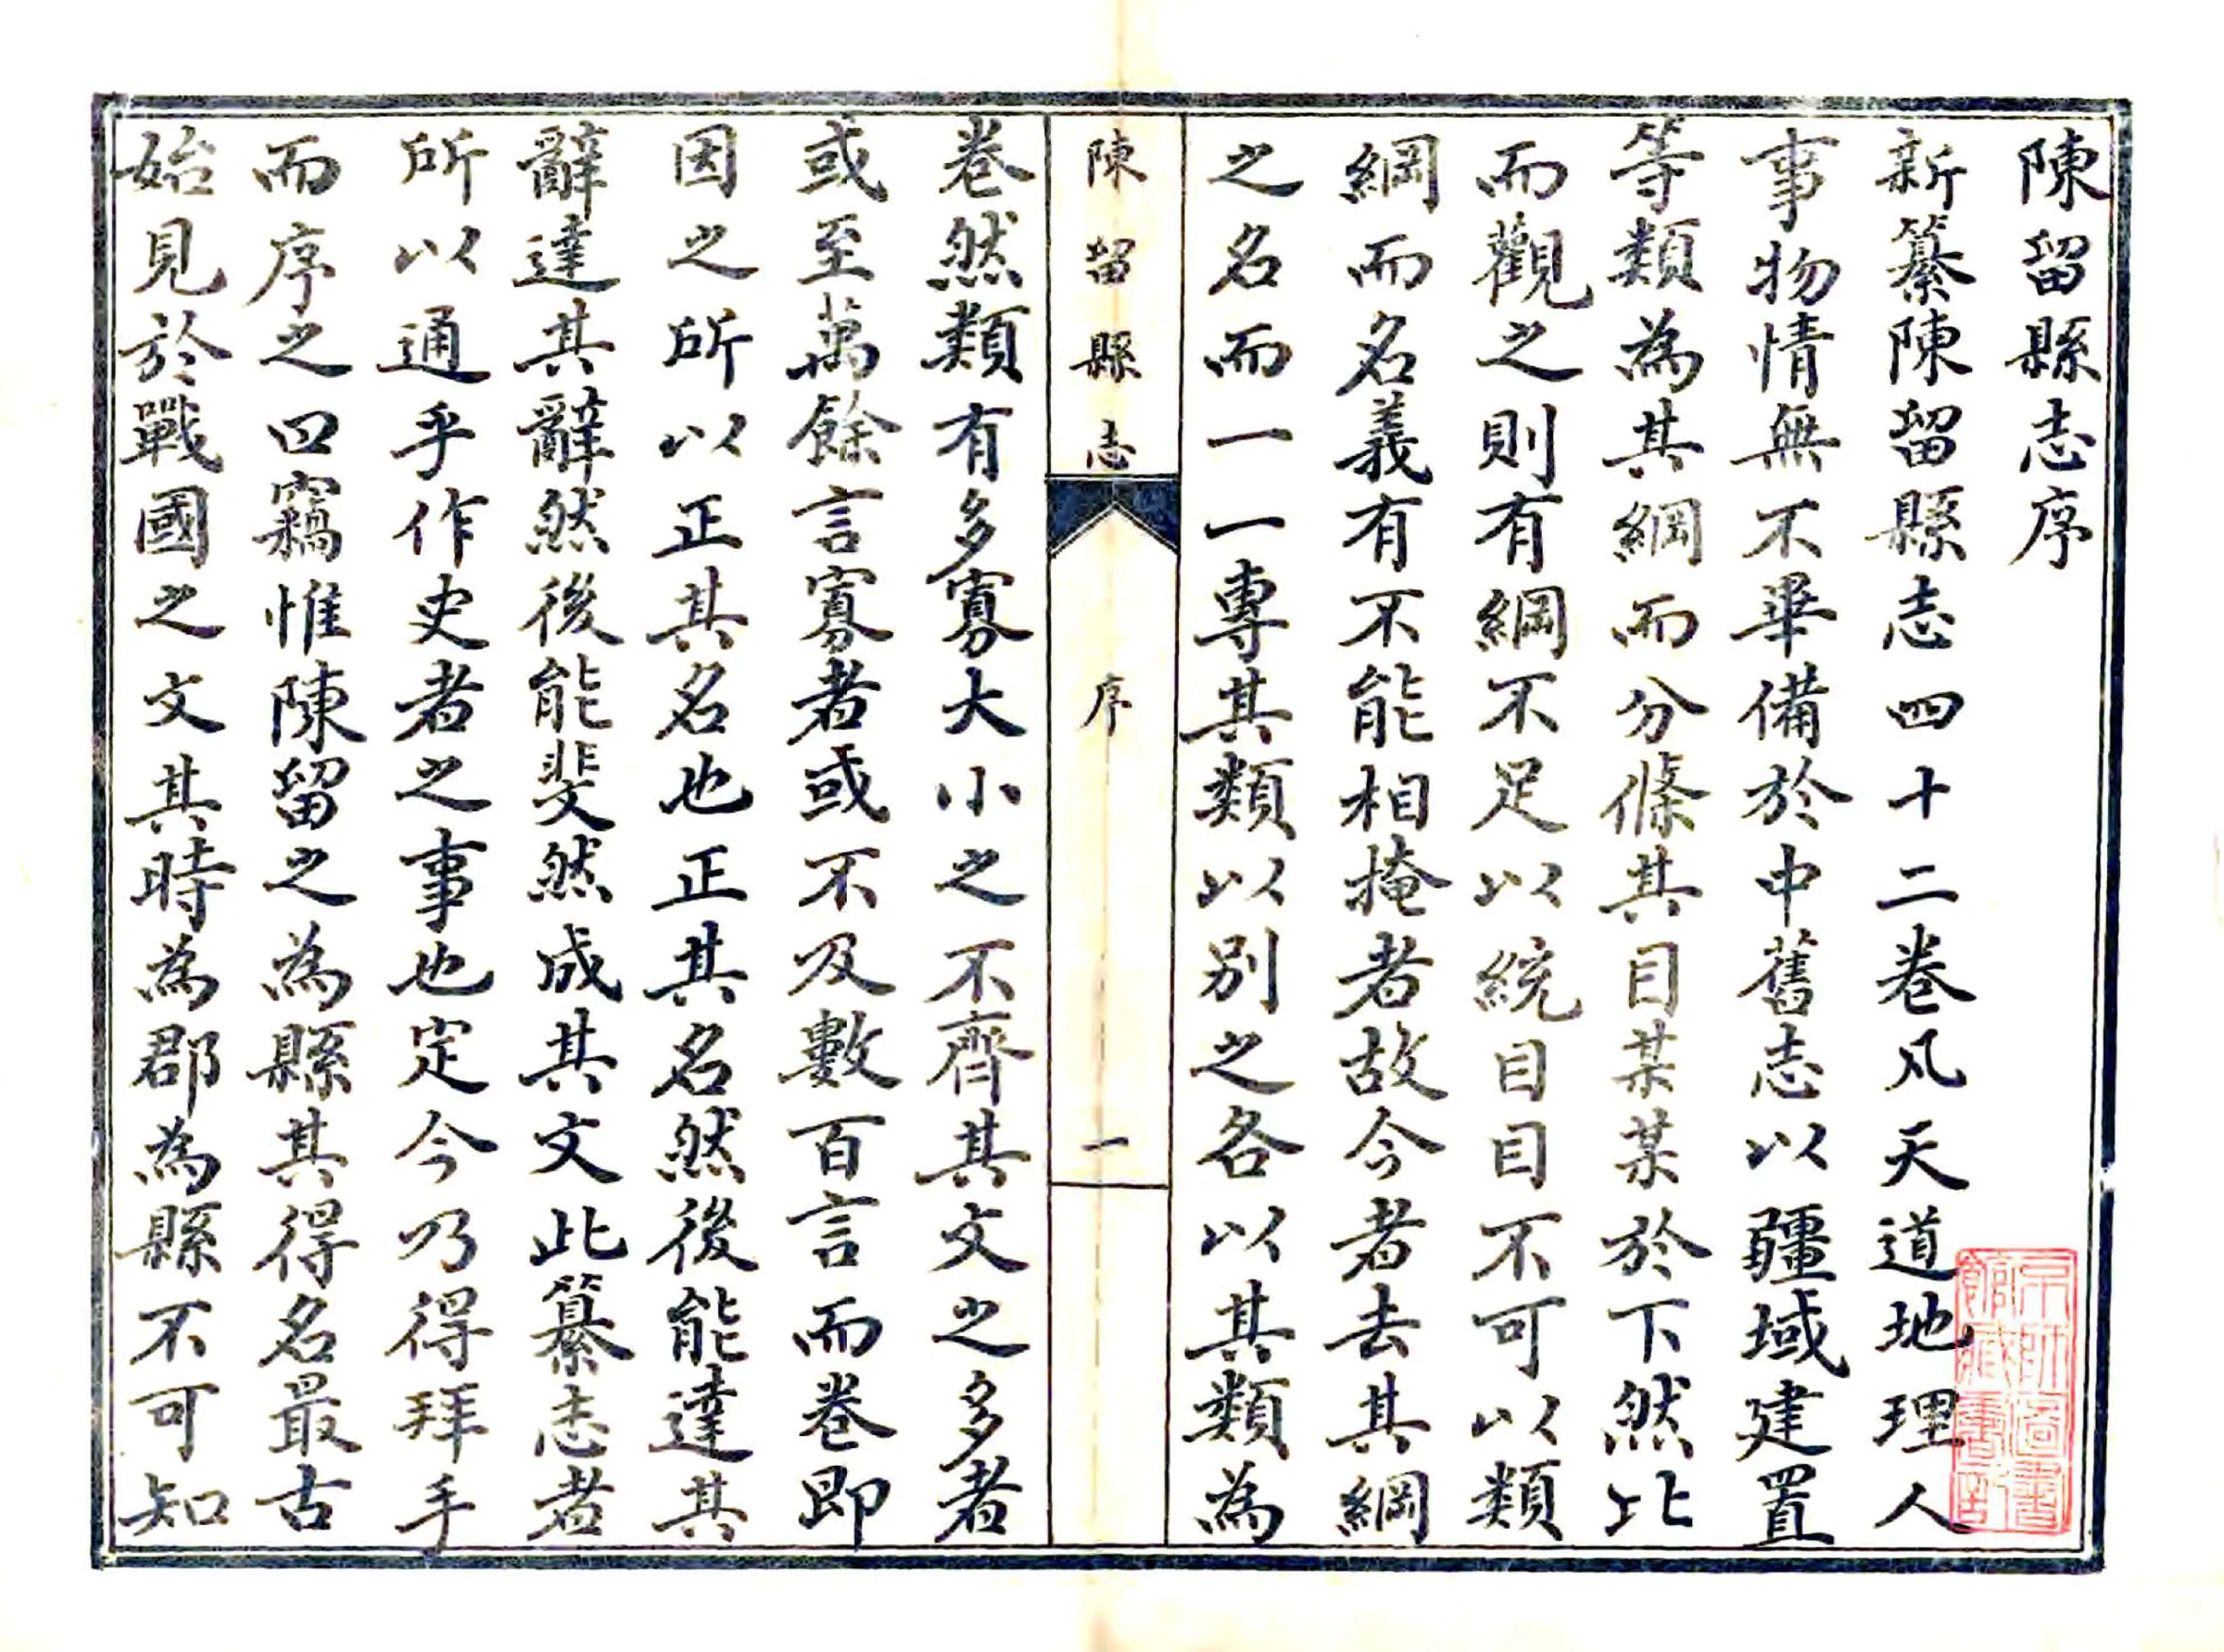 陳留縣志序
新纂陳留縣志四十二卷凡天道地理人
事物情無不畢備於中舊志以疆域建置
等類為其綱而分條其目某某於下然比
而觀之則有綱不足以統目目不可以類
綱而名義有不能相掩者故今者去其綱
之名而一一專其類以別之各以其類為
陳留縣志
序
一
卷然類有多寡大小之不齊其文之多者
或至萬餘言寡者或不及數百言而卷即
因之所以正其名也正其名然後能達其
辭達其辭然後能斐然成其文此纂志者
所以通乎作史者之事也定今乃得拜手
而序之曰竊惟陳留之為縣其得名最古
始見於戰國之文其時為郡為縣不可知
京師圖書
館藏書記